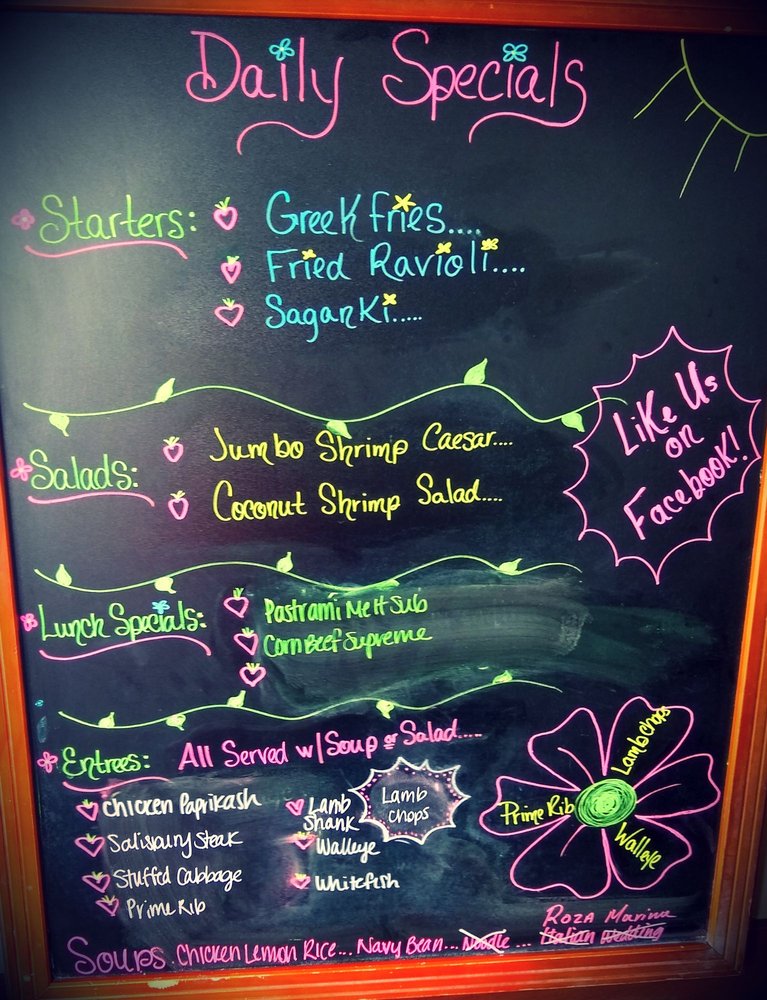 Daily Specials
Starters:
Greek Fries....
Fried Ravioli....
Saganki.....
Salads:
Jumbo Shrimp Caesar....
Coconut Shrimp Salad....
Like Us
on
Facebook!
Lunch Specials:
Pastrami Melt Sub
Corn Beef Supreme
Entrees: All Served w/Soup or Salad.....
Chicken Paprikash
Salisbury Steak
Stuffed Cabbage
Prime Rib
Lamb
Shank
Walleye
Whitefish
Lamb
Chops
Lamb chops
Prime Rib
Walleye
Soups Chicken Lemon Rice... Navy Bean... Noodle ... Italian Wedding
Roza Marina